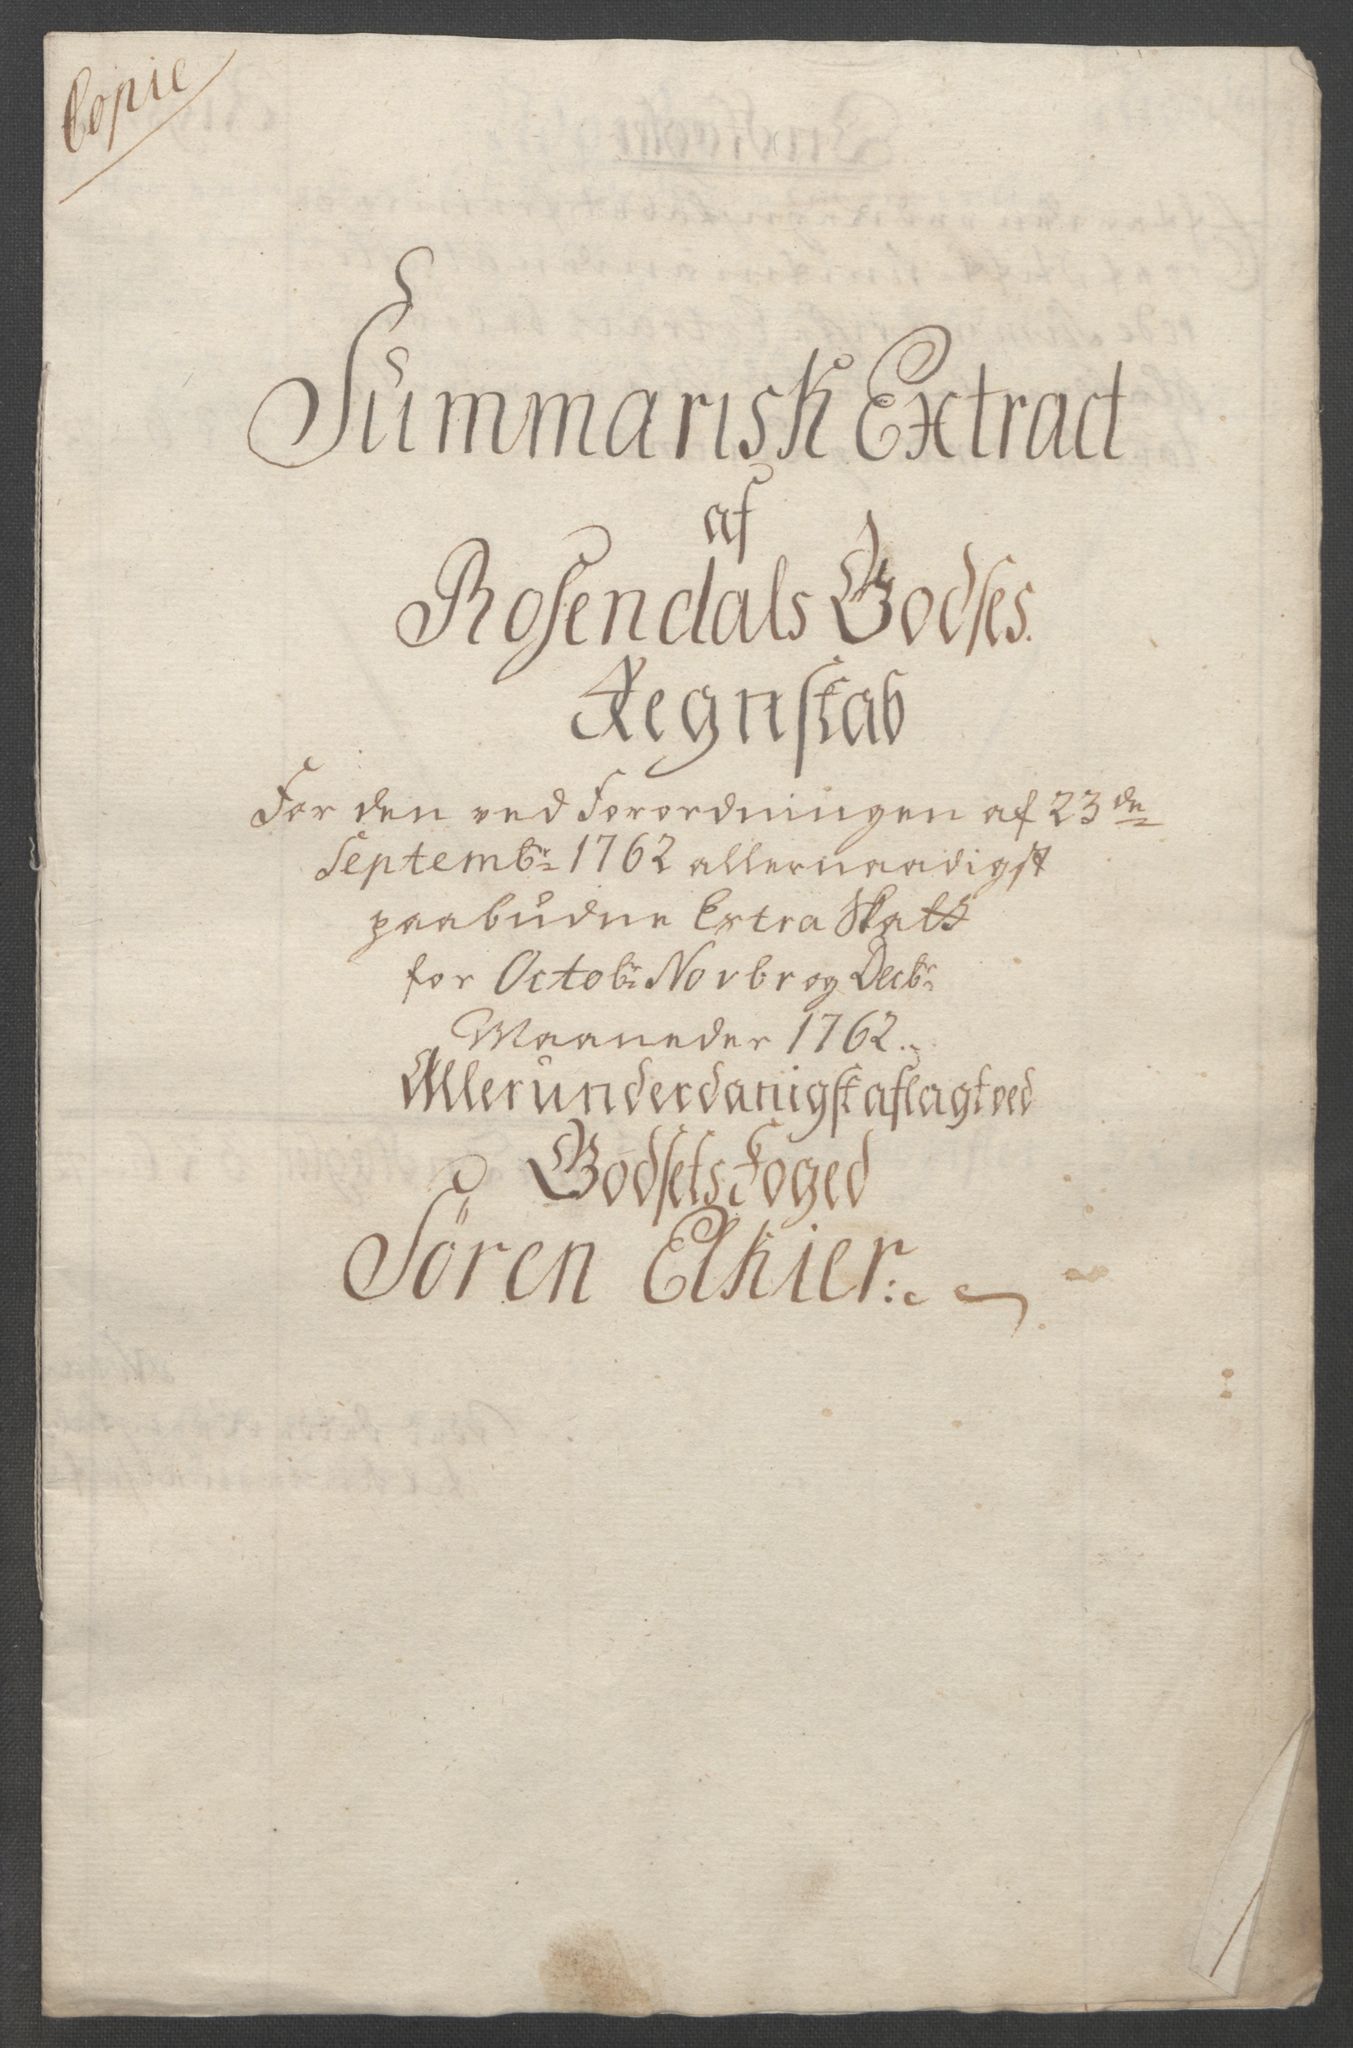 Copie
Summarisk Extract
af
Rosendals Godses
Regnskab
For den ved Forordningen af 23de
Septembr 1762 allernaadigst
paabudne Extra Skatt
for Octobr Novbr og Decbr
Maaneder 1762.
Allerunderdanigst aflagt ved
Godsets Foged
Sören Elkier.